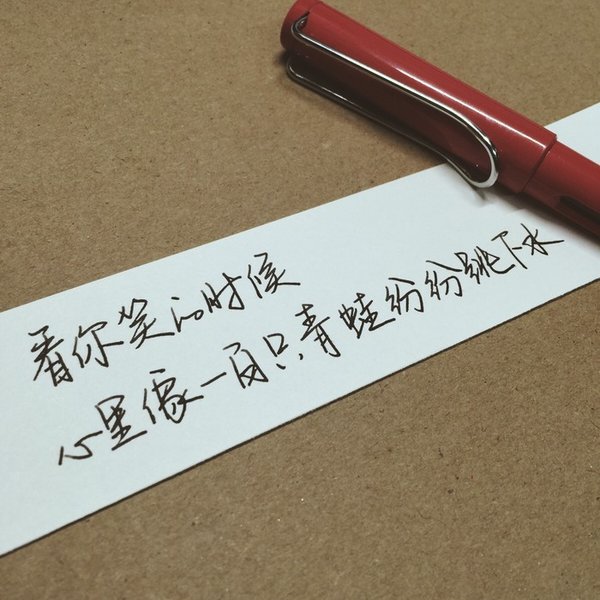 看你笑的时候
心里像一百只青蛙纷纷跳下水